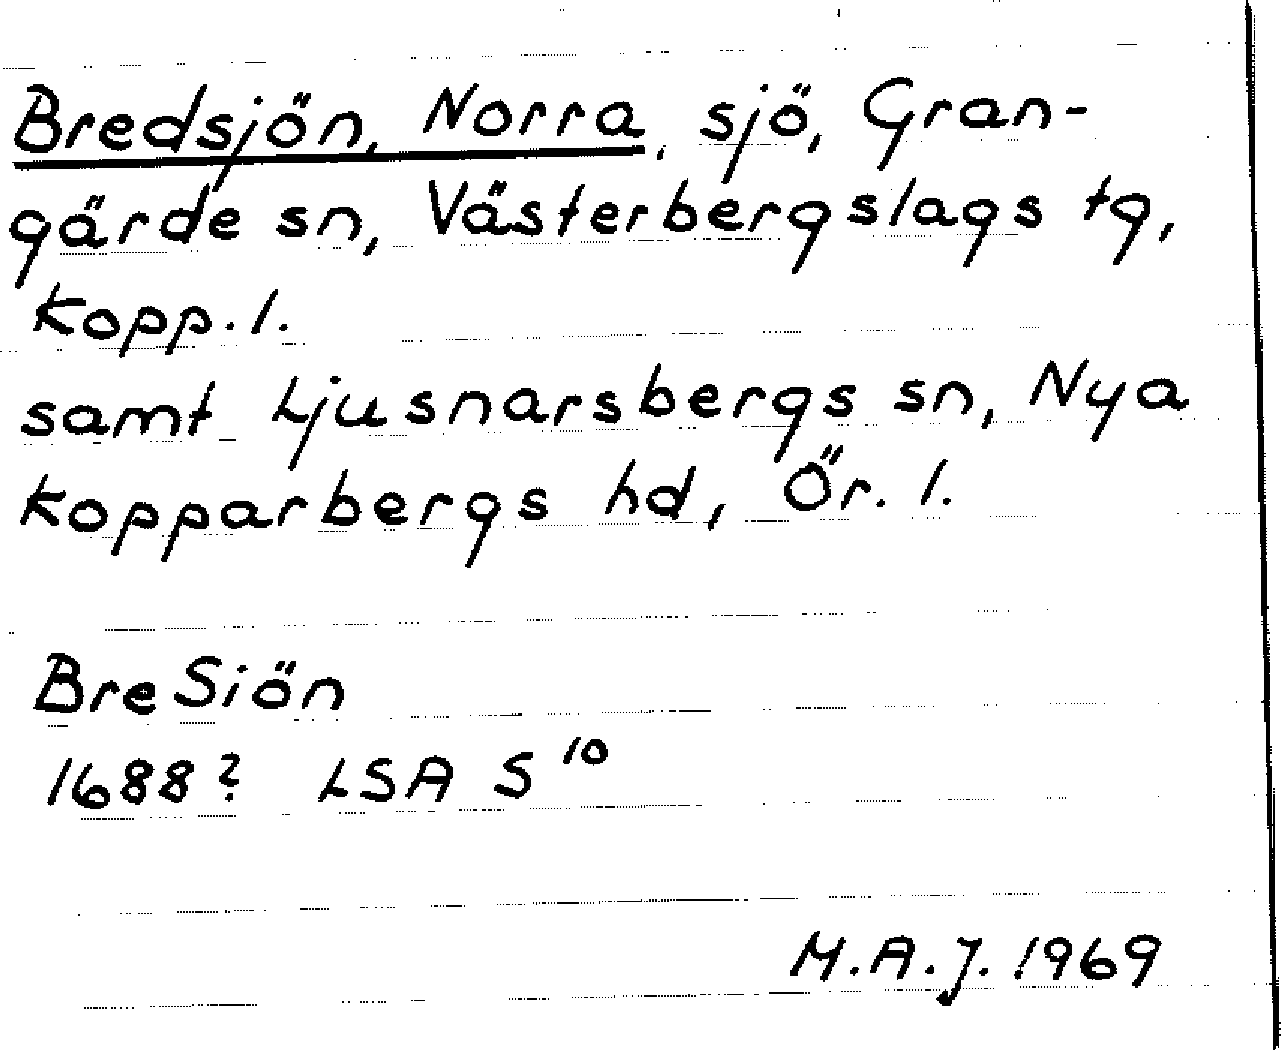 Bredsjön, Norra, sjö, Gran-
gärde sn, Västerbergslags tg,
Kopp. l.
samt Ljusnarsbergs sn, Nya
Kopparbergs hd, Ör. l.
BreSiön
1688? LSA S 10
M.A.J. 1969